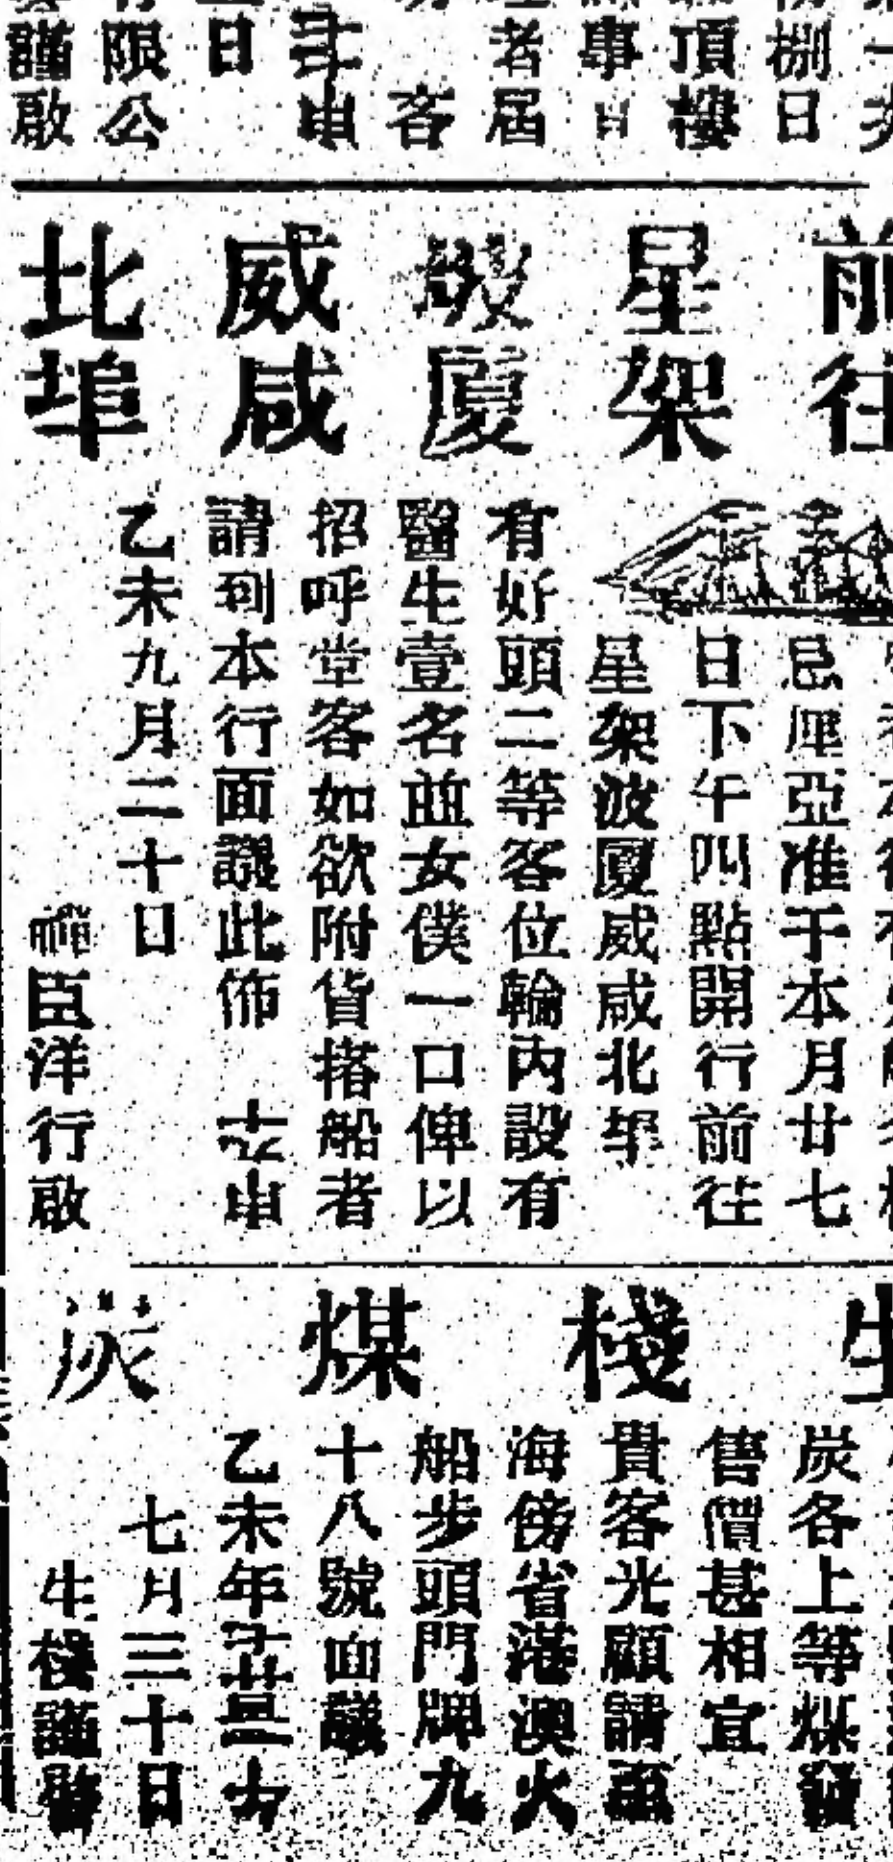 捌日
頂樓
事
者屆
客
日
限公
謹啟
前往
星架
波廈
威咸
北埠
忌厘亞准于本月廿七
日下午四點開行前往
星架波廈威咸北埠
有好頭二等客位輪內設有
醫生壹名並女僕一口俾以
招呼堂客如欲附貨搭船者
請到本行面議此佈
乙未九月二十日
臣洋行啟
生
棧
煤
炭
炭各上等煤發
售價甚相宜
貴客光顧請至
海傍省港澳火
船步頭門牌九
十八號面議
乙未年
七月三十日
生棧謹啓